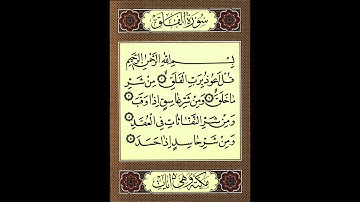 سُورَةُ الْفَلَقِ
بِسْمِ اللَّهِ الرَّحْمَٰنِ الرَّحِيمِ
قُلْ أَعُوذُ بِرَبِّ الْفَلَقِ ١ مِنْ شَرِّ
مَا خَلَقَ ٢ وَمِنْ شَرِّ غَاسِقٍ إِذَا وَقَبَ ٣
وَمِنْ شَرِّ النَّفَّاثَاتِ فِي الْعُقَدِ ٤
وَمِنْ شَرِّ حَاسِدٍ إِذَا حَسَدَ ٥
مكية وهي آيات